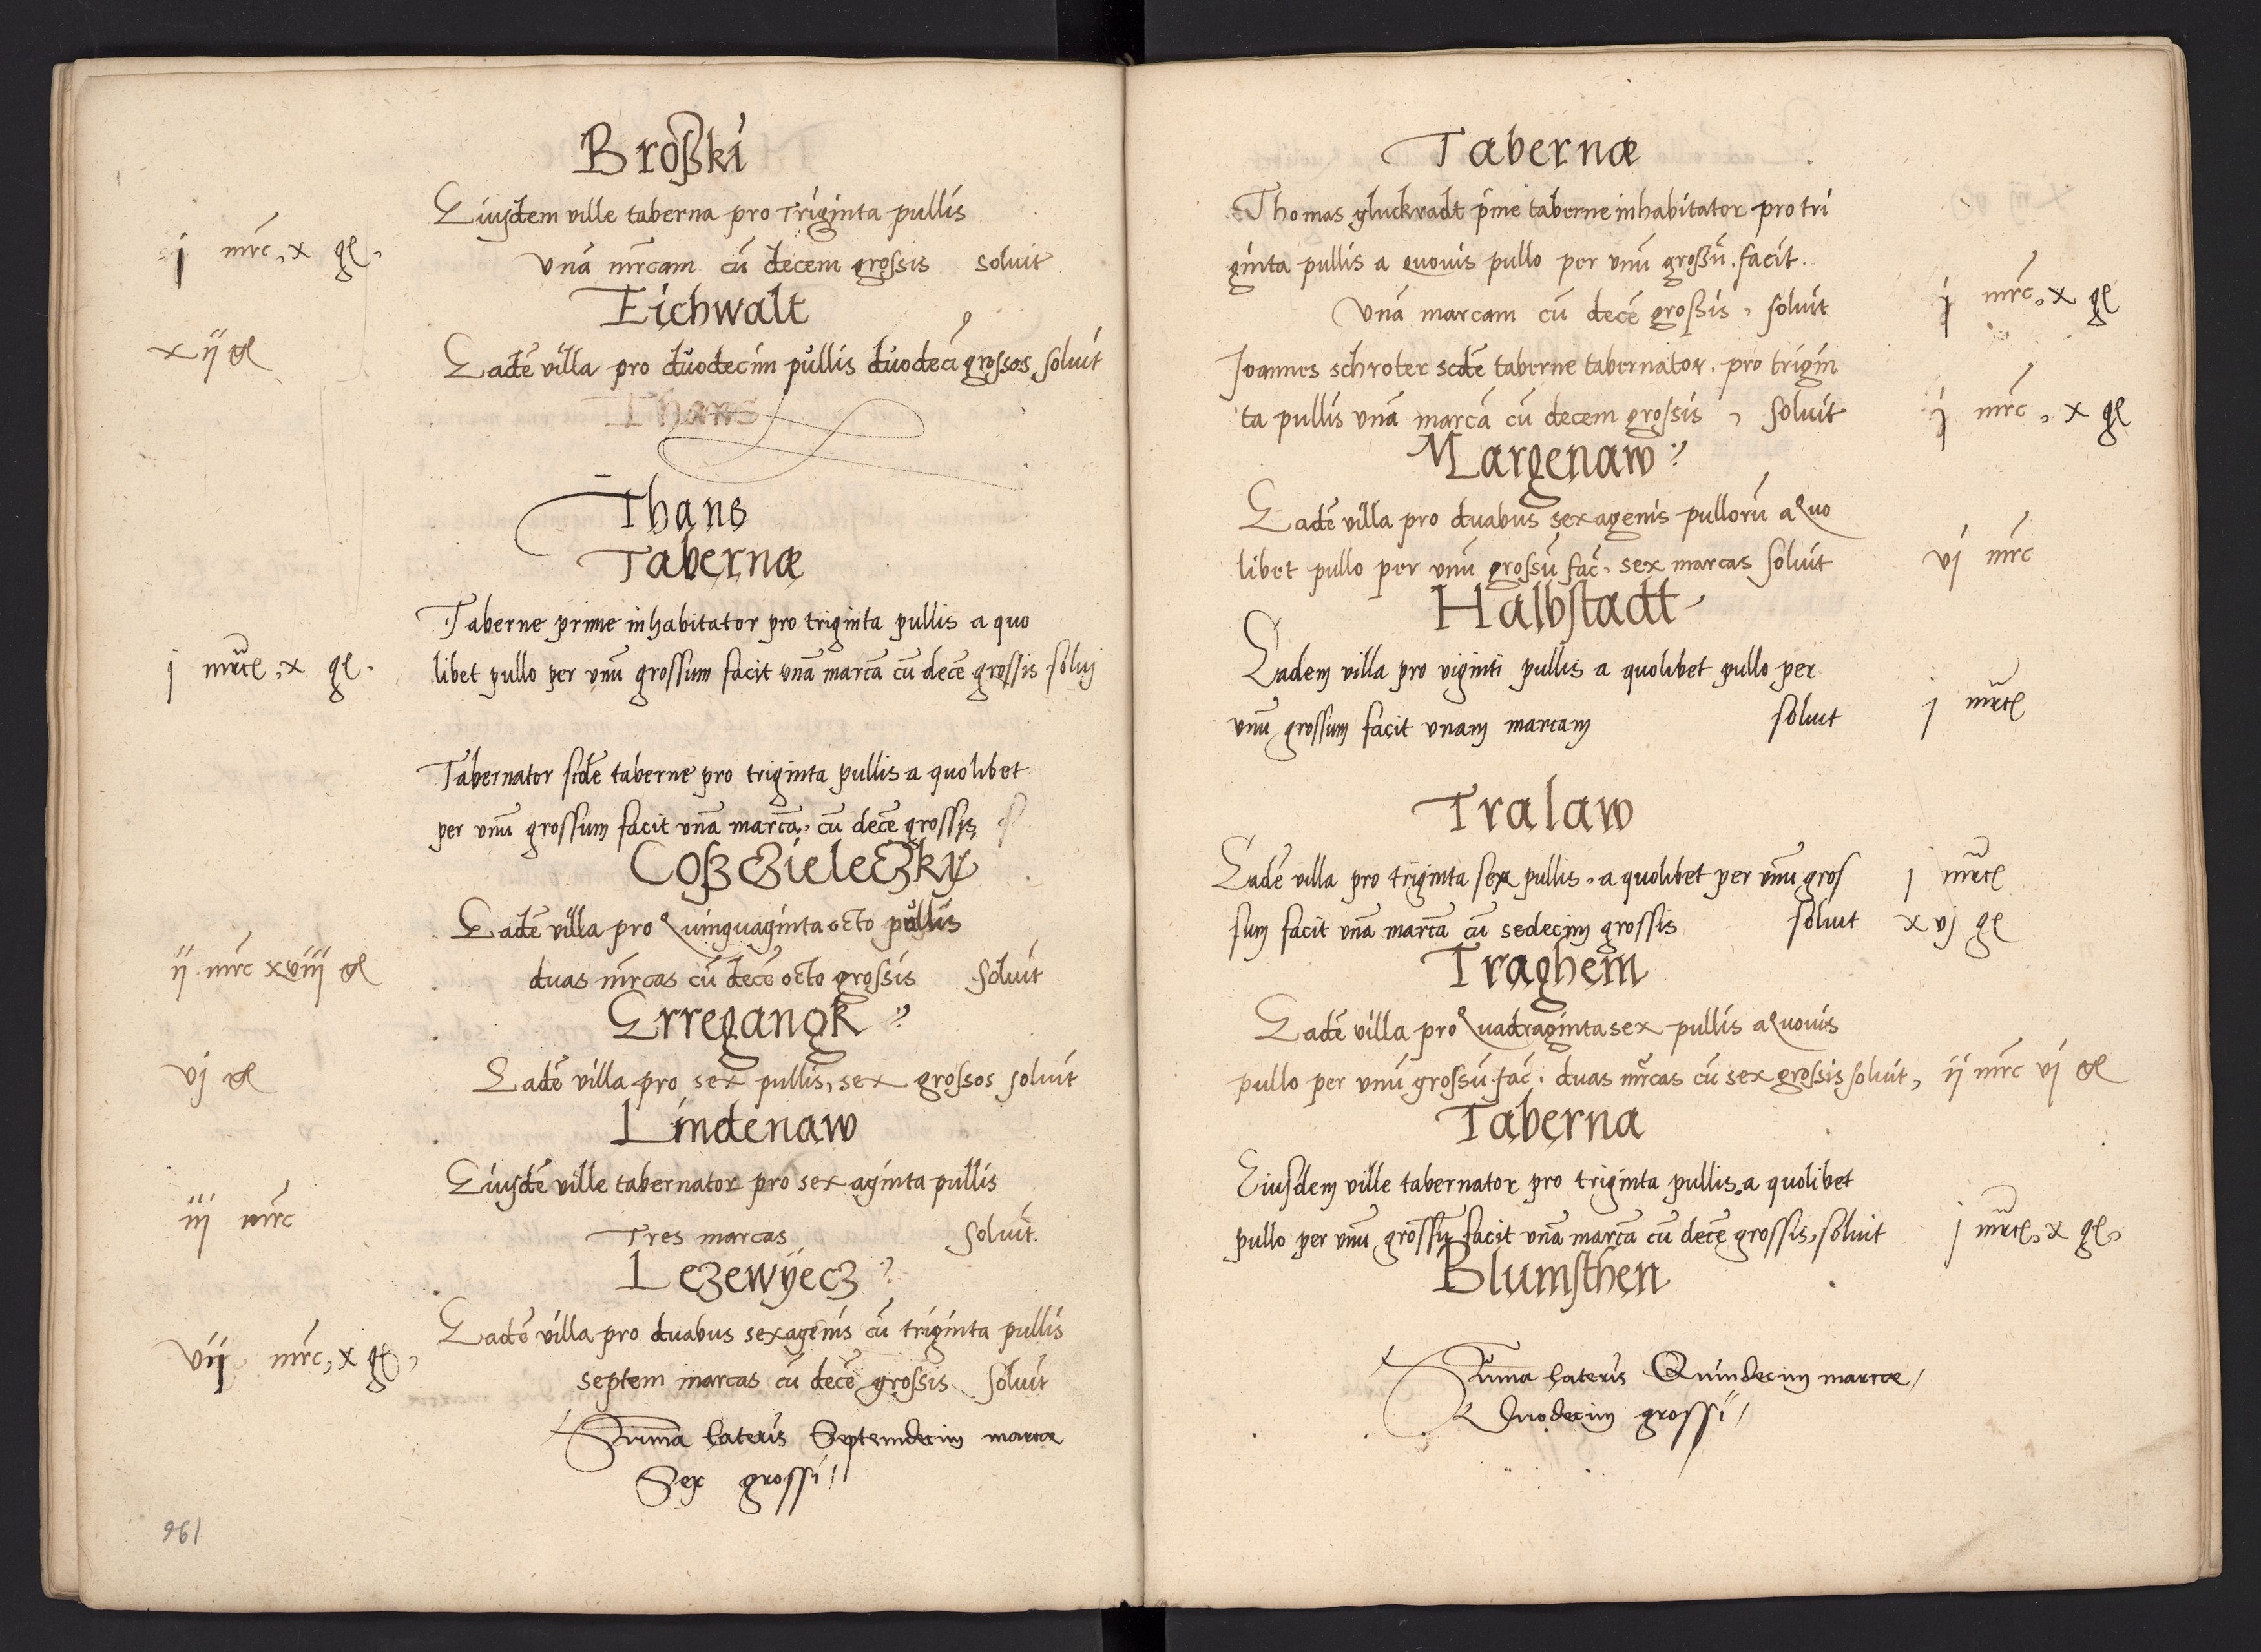 Broßki
Eiusdem ville taberna pro Triginta pullis
j mrc, x gl. Vnā mrcam cū decem grossis soluit
Eichwalt
xij gl Eadē villa pro duodecim pullis duodecī grossos soluit
Thans
Thans
Tabernæ
Taberne prime inhabitator pro triginta pullis a quo
j mrcl, x gl. libet pullo per vnū grossum facit vnā marcā cū decē grossis solui
Tabernator scdē taberne pro triginta pullis a quolibet
per vnū grossum facit vnā marcā, cū decē grossis
Coßczieleczky
Eadē villa pro Quinquaginta octo pullis
ij mrc xviij gl duas mrcas cū decē octo grossis soluit
Erregangk
vj gl Eadē villa pro sex pullis, sex grossos soluit
Lindenaw
Eiusdē ville tabernator pro sexaginta pullis
iij mrc Tres marcas soluit.
Lezewÿecz
Eadē villa pro duabus sexagenis cū triginta pullis
vij mrc, x gl, septem marcas cū decē grossis soluit
Sum̄a Lateris Septemdecim marcæ
Sex grossi
196
Tabernæ
Thomas gluckradt pīne taberne inhabitator pro tri
ginta pullis a quouis pullo per vnū grossū. facit.
Vnā marcam cū decē großis, soluit j mrc, x gl
Joannes schroter scdē taberne tabernator. pro trigin
ta pullis vnā marcā cū decem grossis, soluit j mrc, x gl
Margenaw
Eadē villa pro duabus sexagenis pullorū a Quo
libet pullo per vnū grossū fac̄. sex marcas soluit vj mrc
Halbstadt
Eadem villa pro viginti pullis a quolibet pullo per
vnū grossum facit vnam marcam soluit j mrcl
Tralaw
Eadē villa pro triginta sex pullis, a quolibet per vnū gros j mrcl
sum facit vnā marcā cū sedecim grossis soluit xvj gl
Traghem
Eadē villa pro Quadraginta sex pullis a Quouis
pullo per vnū grossū fac̄. duas mrcas cū sex grossis soluit, ij mrc vj gl
Taberna
Eiusdem ville tabernator pro triginta pullis. a quolibet
pullo per vnū grossū facit vnā marcā cū decē grossis, soluit j mrcl, x gl,
Blumsthen
Sum̄a Lateris Quindecim marcæ
Duodecim grossi